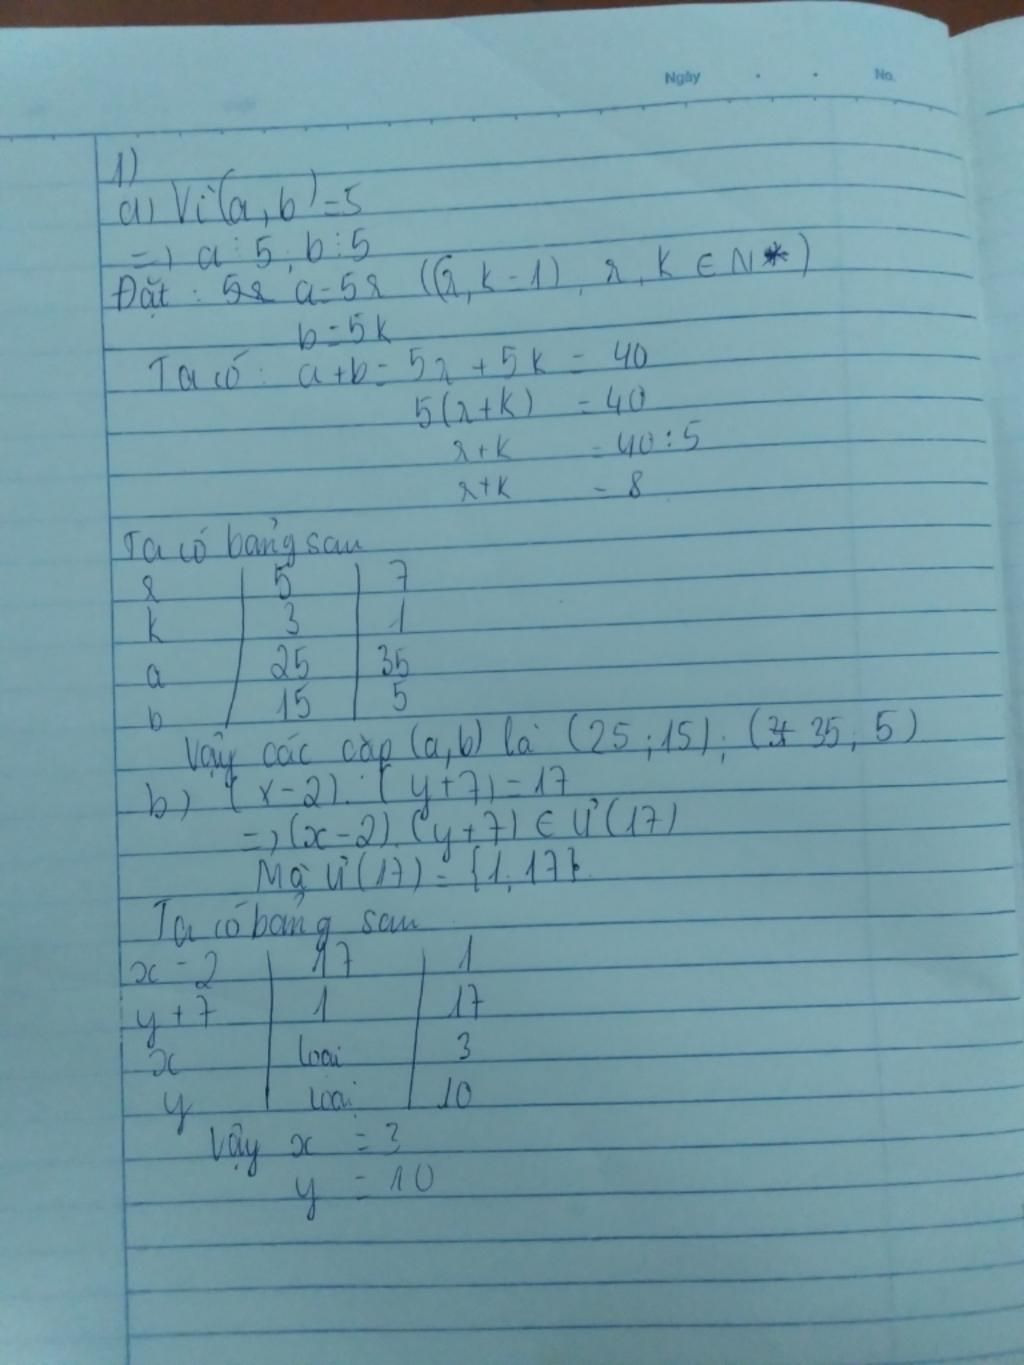 Ngày . . No.
1)
a) Vì (a, b) = 5
=> a ⋮ 5, b ⋮ 5
Đặt : 5r a = 5r ((r, k = 1), r, k ∈ N*)
b = 5k
Ta có : a + b = 5r + 5k = 40
5(r + k) = 40
r + k = 40 : 5
r + k = 8
Ta có bảng sau
r | 5 | 7
k | 3 | 1
a | 25 | 35
b | 15 | 5
Vậy các cặp (a, b) là (25 ; 15) ; ( 35 ; 5)
b) (x - 2) . ( y + 7) = 17
=> (x - 2) . (y + 7) ∈ Ư (17)
Mà Ư (17) = {1; 17}.
Ta có bảng sau
x - 2 | 17 | 1
y + 7 | 1 | 17
x | loại | 3
y | loại | 10
Vậy x = 3
y = 10